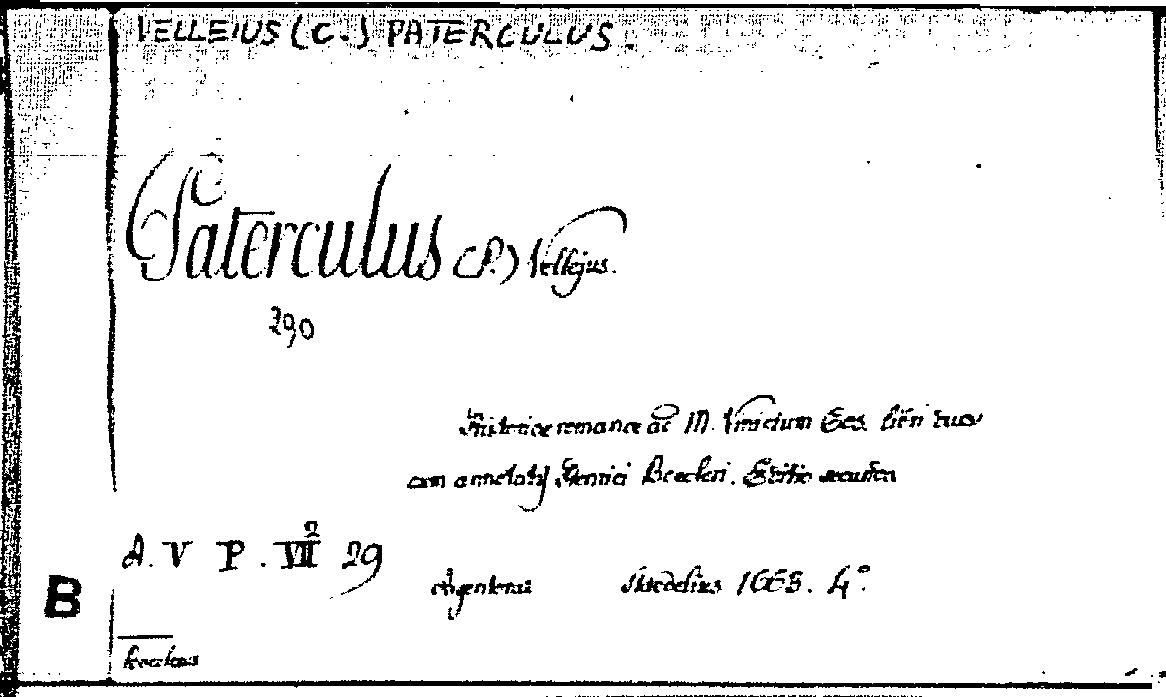 VELLEIUS (C.) PATERCULUS.
Paterculus (P.) Vellejus.
290
Historiae romanae ad M. Vinicium Cos. libri duo
cum annotatis Henrici Boecleri. Editio secunda
A. V P. VII 2 29
Argentorati Staedelius 1663. 4°.
B
Boeclerus